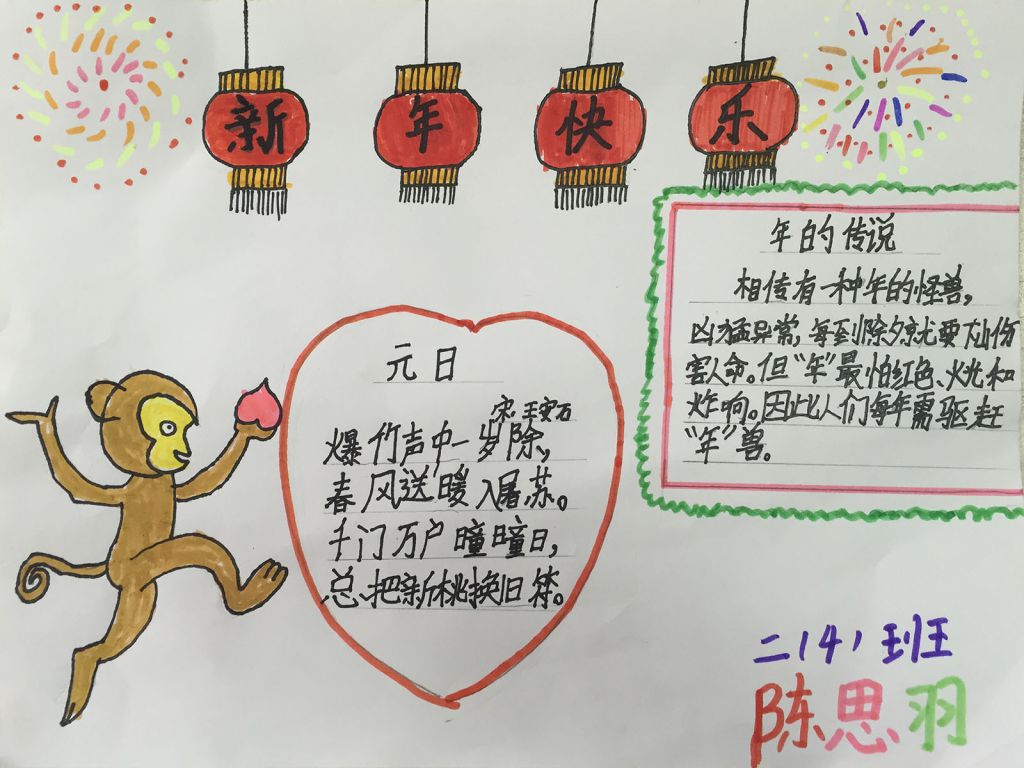 新年快乐
年的传说
相传有一种年的怪兽，
凶猛异常，每到除夕就要出伤
害人命。但“年”最怕红色、火光和
炸响。因此人们每年需驱赶
“年”兽。
元日
宋 王安石
爆竹声中一岁除，
春风送暖入屠苏。
千门万户曈曈日，
总把新桃换旧符。
二（4）班
陈思羽